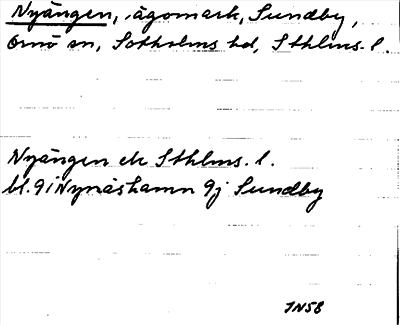 Nyängen, ägomark, Sundby,
Ornö sn, Sotholms hd, Sthlms. l.
Nyängen ek Sthlms. l.
bl. 9i Nynäshamn 9j Sundby
JN58